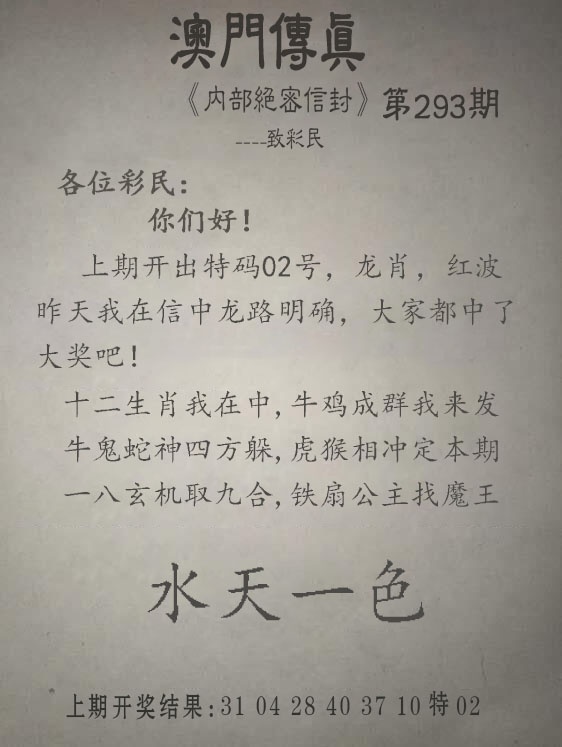 澳門傳真
《内部絕密信封》第293期
----致彩民
各位彩民：
你们好！
上期开出特码02号，龙肖，红波
昨天我在信中龙路明确，大家都中了
大奖吧！
十二生肖我在中,牛鸡成群我来发
牛鬼蛇神四方躲,虎猴相冲定本期
一八玄机取九合,铁扇公主找魔王
水天一色
上期开奖结果:31 04 28 40 37 10 特 02